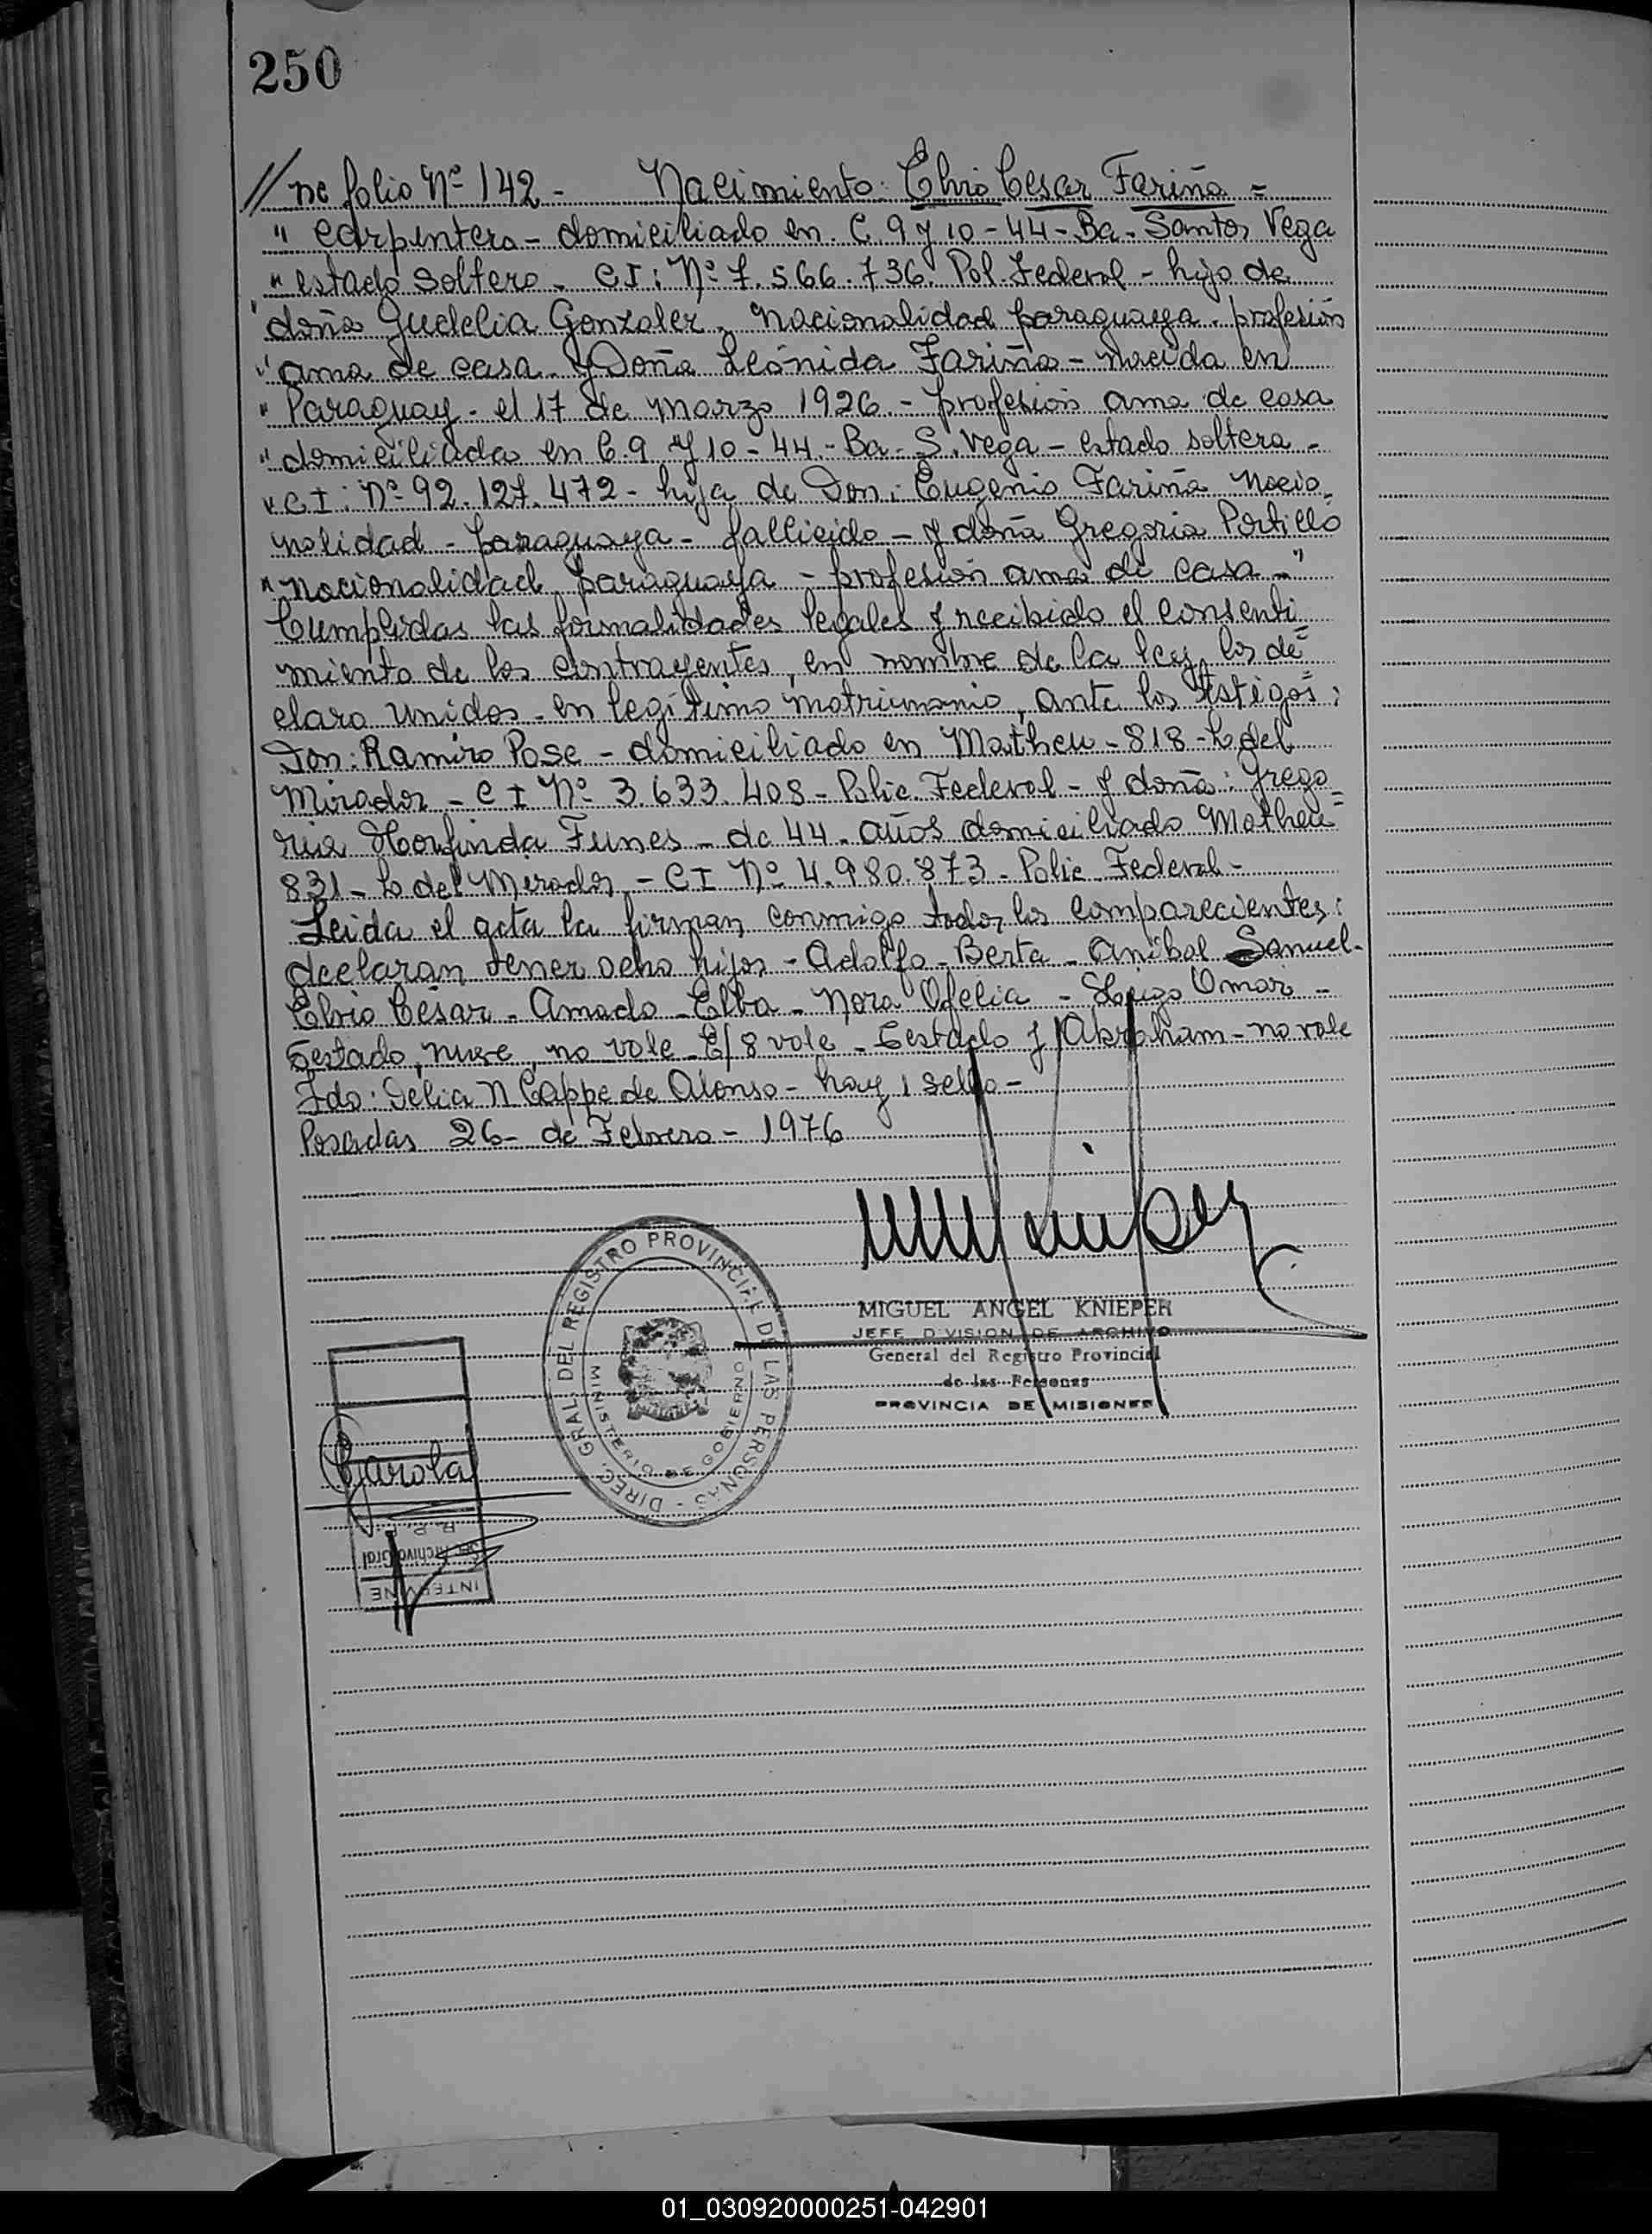 250
// ne folio Nº 142 - Nacimiento: Elvio Cesar Fariña =
" Carpintero - domiciliado en C. 9 y 10 - 44 - Ba - Santos Vega
" estado soltero - CI: Nº 7.566.736. Pol. Federal - hijo de
" doña Gudelia Gonzalez - nacionalidad paraguaya. profesión
" ama de casa. y Doña Leónida Fariña - nacida en
" Paraguay - el 17 de marzo 1926 - profesión ama de casa
" domiciliada en C. 9 y 10 - 44 - Ba - S. Vega - estado soltera -
" CI: Nº 92.127.472 - hija de Don: Eugenio Fariña nacio
nalidad - paraguaya - fallicido - y doña Gregoria Portillo
" nacionalidad paraguaya - profesión ama de casa - "
Cumplidas las formalidades legales y recibido el consenti
miento de los contrayentes, en nombre de la ley los de=
claro unidos en legítimo matrimonio, ante los testigos:
Don: Ramiro Pose - domiciliado en Matheu - 818 - L. del
Mirador - CI Nº 3.633.408 - Polic. Federal - y doña: Grego
ria Funes - de 44 años domiciliado Matheu=
831 - L. del Mirador - CI Nº 4.980.873 - Polic Federal -
Leida el acta la firman conmigo todos los comparecientes:
declaran tener ocho hijos - Adolfo - Berta - Anibal Samuel -
Elvio César - Amado - Elba - Nora Ofelia - Hugo Omar -
testado, nueve, no vale - E/ 8 vale - testado y Abraham - no vale
Fdo: Delia N Cappe de Alonso - hay 1 sello -
Posadas 26 - de Febrero - 1976
DIREC. GRAL. DEL REGISTRO PROVINCIAL DE LAS PERSONAS -
MINISTERIO DE GOBIERNO
MIGUEL ANGEL KNIEPER
JEFE DIVISION DE ARCHIVO
General del Registro Provincial
de las Personas
PROVINCIA DE MISIONES
Garola
R. P. P.
Sec. Archivo Gral
INTERVINE
01_030920000251-042901